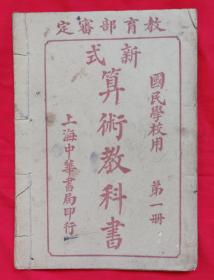 教育部審定
新式
算術教科書
國民學校用
第一册
上海中華書局印行